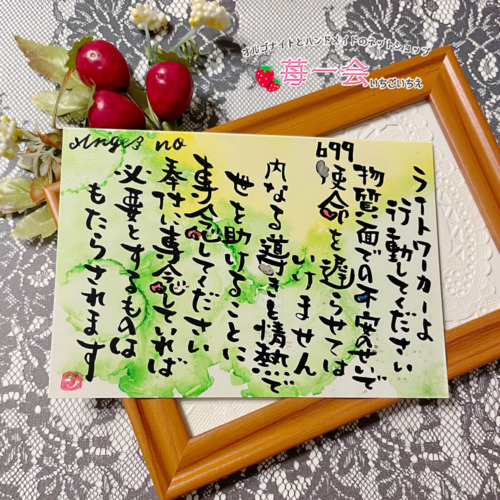 オルゴナイトとハンドメイドのネットショップ
苺一会
いちごいちえ
Angel no
699
ライトワーカーよ
行動してください
物質面での不安のせいで
使命を遅らせては
いけません
内なる導きと情熱で
世を助けることに
専念してください
奉仕に専念していれば
必要とするものは
もたらされます